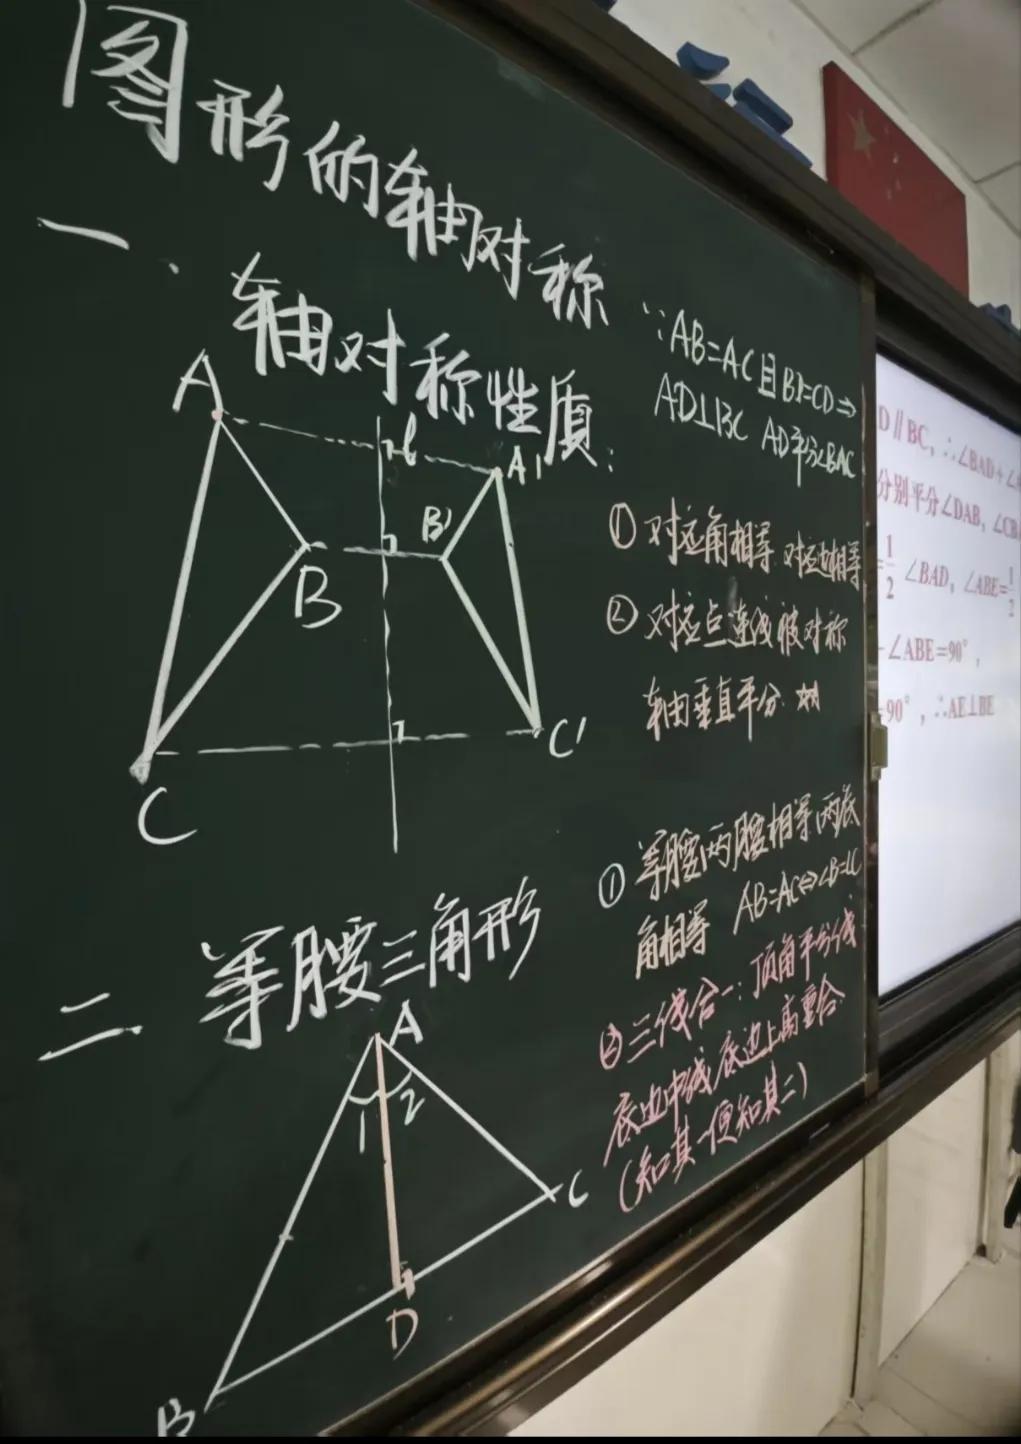 图形的轴对称
一、轴对称性质:
A
l
A'
B'
B
C
C'
∵AB=AC且BD=CD⇒
AD⊥BC AD平分∠BAC
①对应角相等 对应边相等
②对应点连线被对称
轴垂直平分
二 等腰三角形
A
1 2
C
D
B
①等腰两腰相等两底
角相等 AB=AC⇔∠B=∠C
②三线合一:顶角平分线
底边中线 底边上高重合
(知其一便知其二)
D∥BC,∴∠BAD+∠
分别平分∠DAB,∠CB
=1/2 ∠BAD,∠ABE=1/2
∠ABE=90°,
90°,∴AE⊥BE